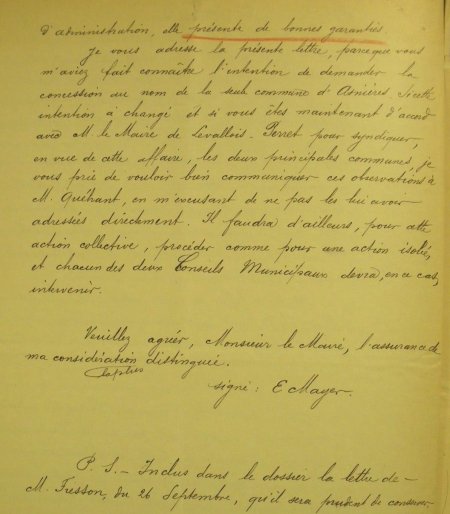 d'administration, elle présente de bonnes garanties.
Je vous adresse la présente lettre, parce que vous
m'aviez fait connaître l'intention de demander la
concession au nom de la seule commune d'Asnières. Si cette
intention a changé et si vous êtes maintenant d'accord
avec M. le Maire de Levallois-Perret pour syndiquer,
en vue de cette affaire, les deux principales communes, je
vous prie de vouloir bien communiquer ces observations à
M. Quéhant, en m'excusant de ne pas les lui avoir
adressées directement. Il faudra d'ailleurs, pour cette
action collective, procéder comme pour une action isolée,
et chacun des deux Conseils Municipaux devra, en ce cas,
intervenir.
Veuillez agréer, Monsieur le Maire, l'assurance de
ma considération distinguée.
la plus
signé : E Mayer.
P. S. - Inclus dans le dossier la lettre de -
M. Fresson, du 26 Septembre, qu'il sera prudent de conserver